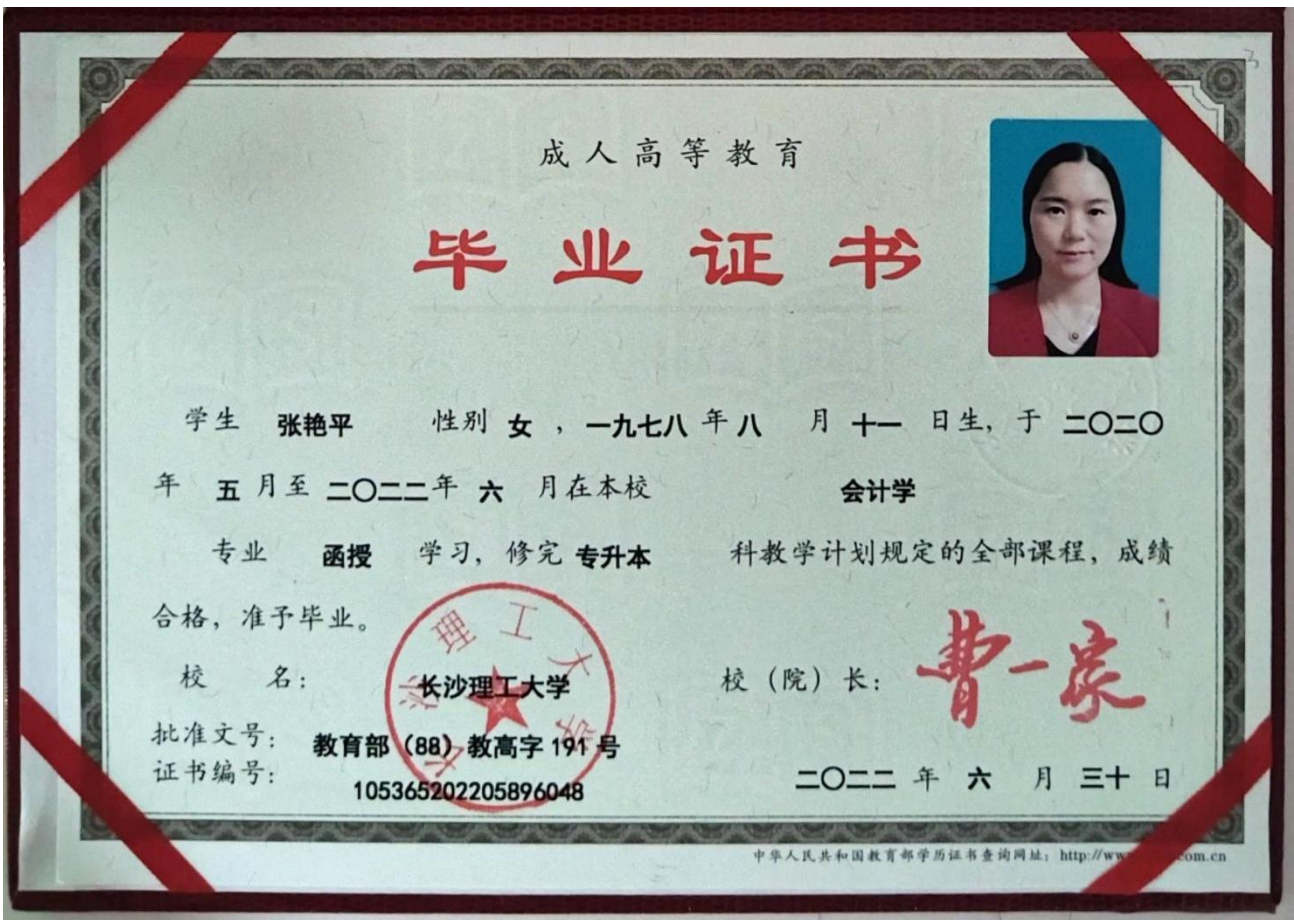 成人高等教育
毕业证书
学生 张艳平 性别 女 , 一九七八 年 八 月 十一 日生, 于 二〇二〇
年 五 月至 二〇二二 年 六 月在本校 会计学
专业 函授 学习, 修完 专升本 科教学计划规定的全部课程, 成绩
合格, 准予毕业。
校 名: 长沙理工大学 校（院）长: 曹一家
批准文号: 教育部（88）教高字 191 号
证书编号: 105365202205896048
二〇二二 年 六 月 三十 日
长沙理工大学
中华人民共和国教育部学历证书查询网址: http://ww com.cn